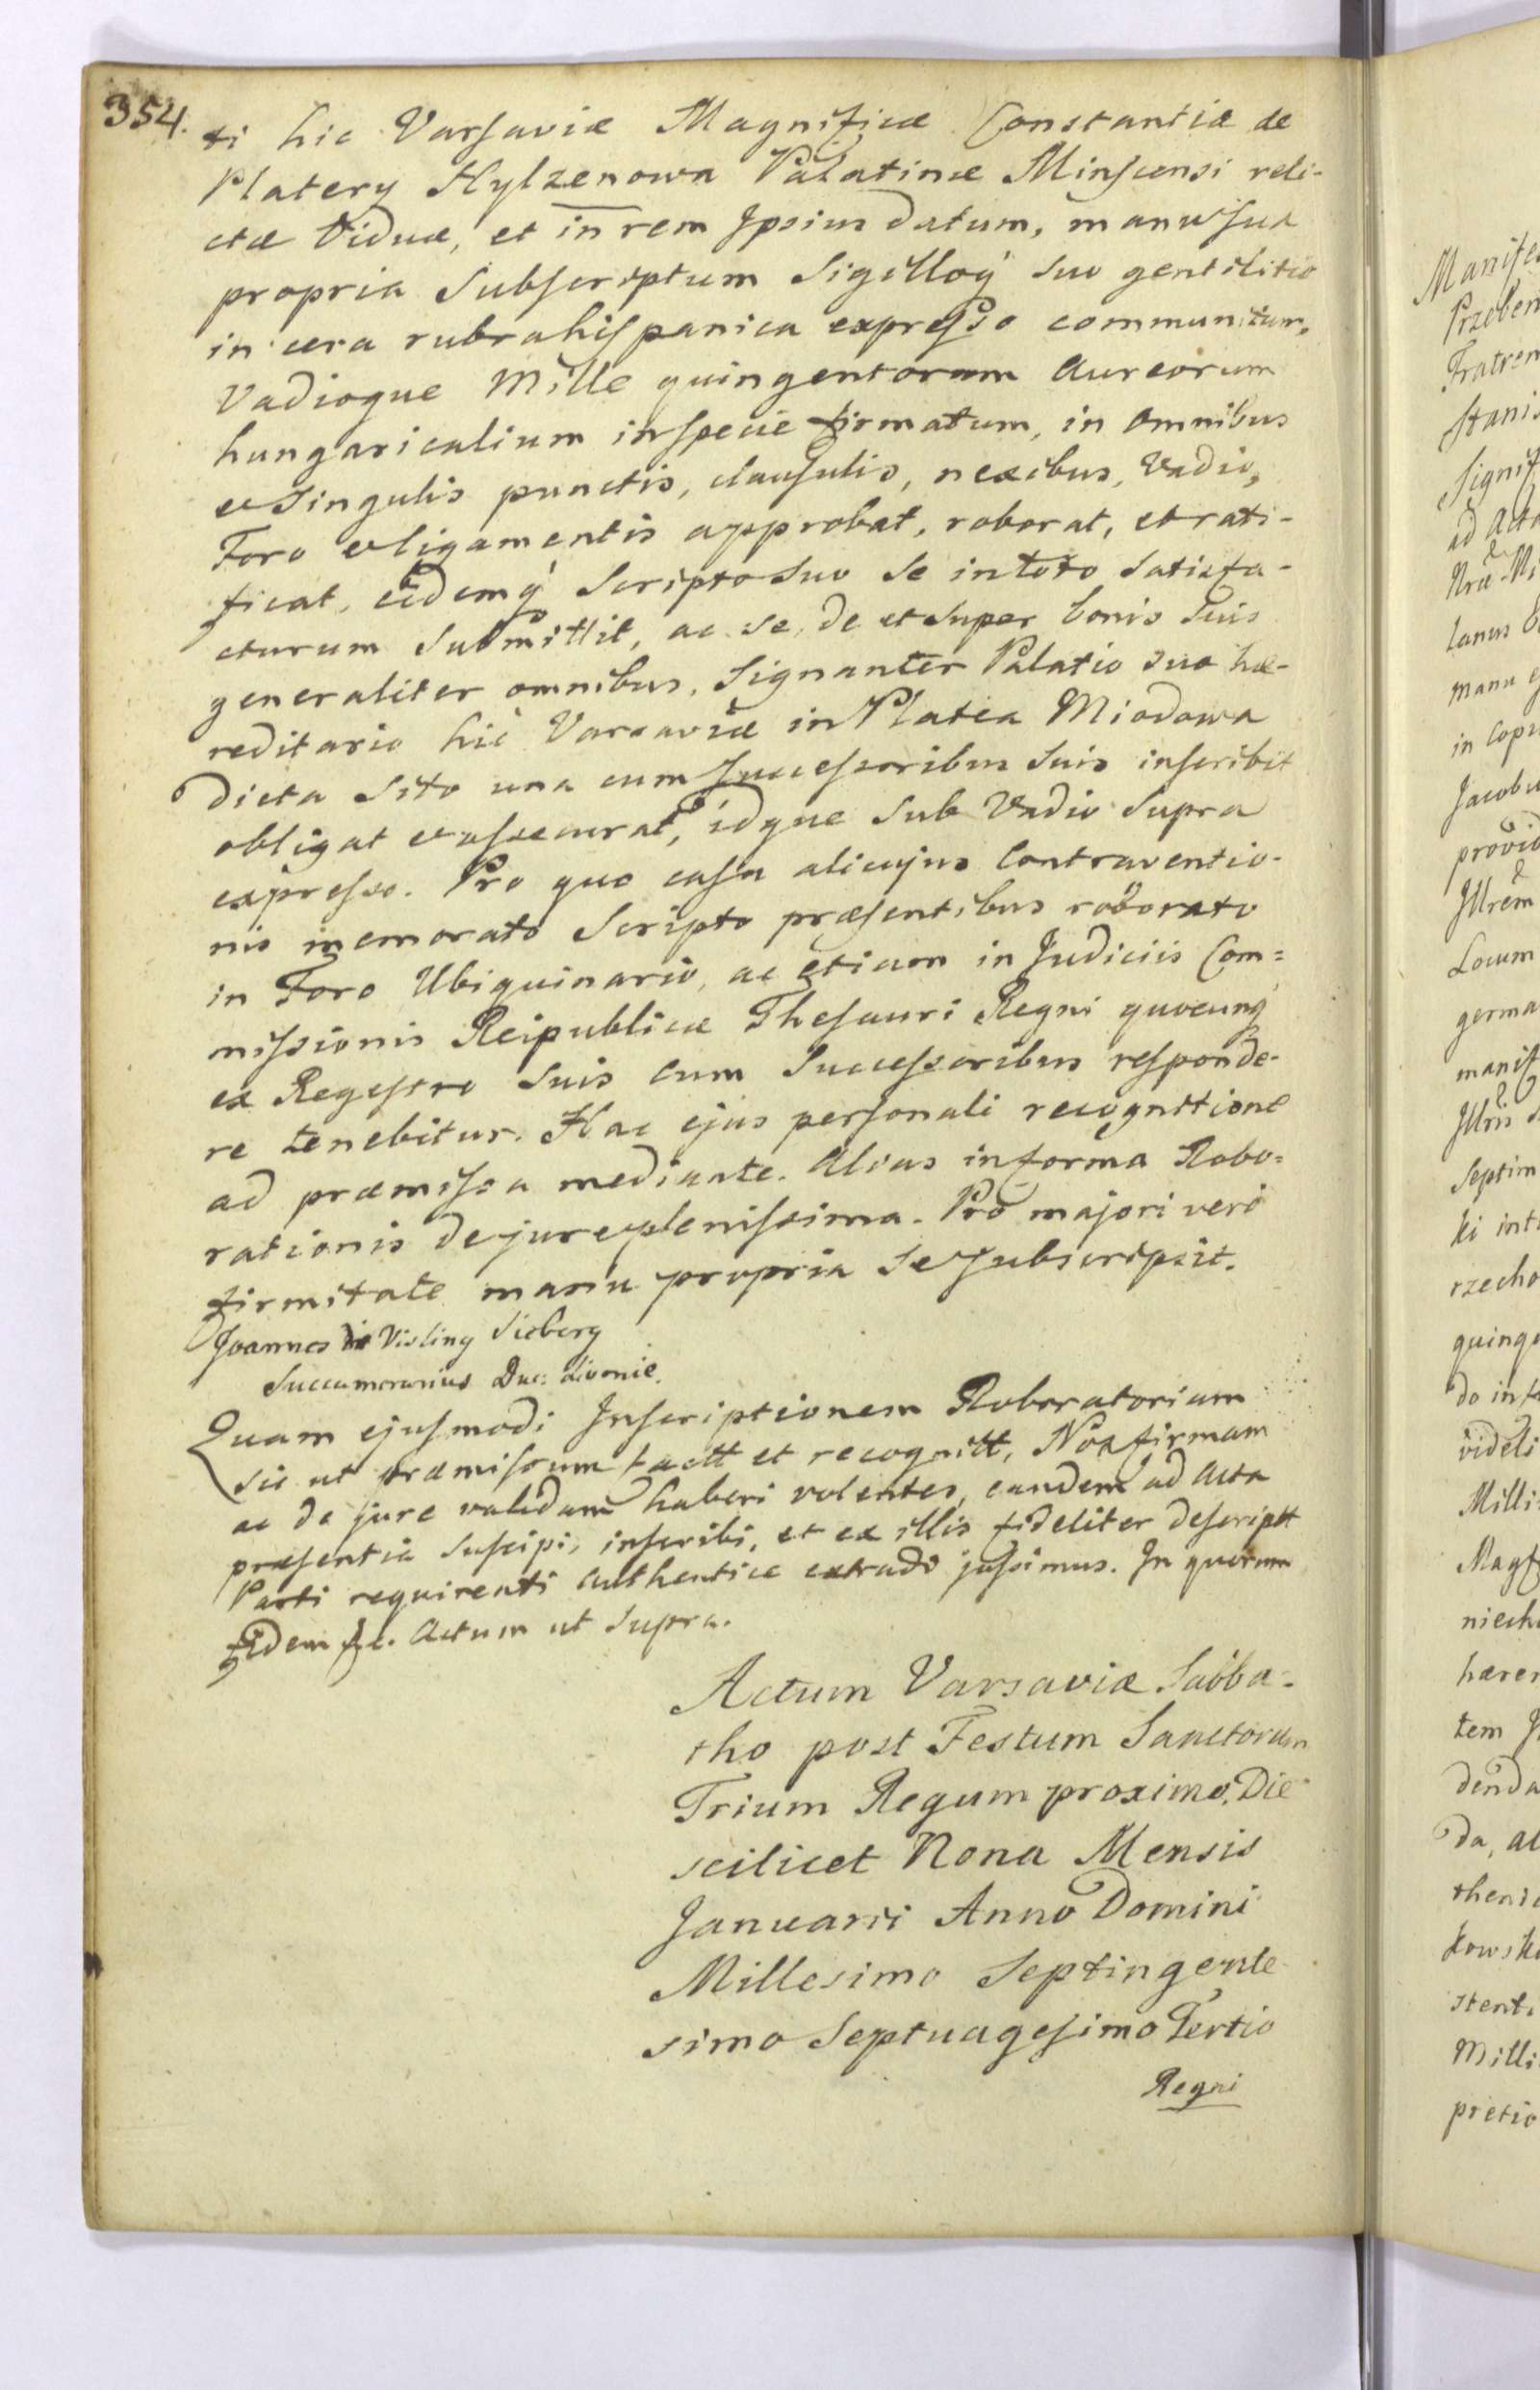 354.
ti hic Varsaviæ Magnificæ Constantiæ de
Platery Hylzenowa Palatinæ Minscensi reli-
ctæ Viduæ, et in rem Ipsius datum, manu sua
propria Subscriptum Sigilloq́ suo gentilitio
in cera rubra hispanica expresso communitum,
Vadioque Mille quingentorum Aureorum
hungaricalium in specie firmatum, in Omnibus
et Singulis punctis, clausulis, nexibus, Vadio,
Foro et ligamentis approbat, roborat, et rati-
ficat, eidemq́ Scripto suo se in toto Satisfa-
cturum Submittit, ac se, de et super bonis Suis
generaliter omnibus, Signanter Palatio suo hæ-
reditario hic Varsaviæ in Platea Miodowa
dicta Sito una cum Successoribus Suis inscribit
obligat et assecurat, idque Sub Vadio Supra
expresso. Pro quo casu alicujus Contraventio-
nis memorato Scripto præsentibus roborato
in Foro Ubiquinario, ac etiam in Judiciis Com=
missionis Reipublicæ Thesauri Regni quocunq́
ex Regestro Suis cum Successoribus responde-
re tenebitur. Hac ejus personali recognitione
ad præmissa mediante. Alias in forma Robo=
rationis de jure plenissima. Pro majori vero
firmitate manu propria se subscripsit.
Joannes de Visling Sieberg
Succamerarius Duc: Livoniæ.
Quam ejusmodi Inscriptionem Roboratoriam
sic ut præmissum factt et recognitt, Nos firmam
ac de jure validam haberi volentes, eandem ad Acta
præsentia suscipi, inscribi, et ex illis fideliter descriptt
Parti requirenti authentice extradi jussimus. In quorum
fidem &c. Actum ut Supra.
Actum Varsaviæ Sabba=
tho post Festum Sanctorum
Trium Regum proximo, Die
scilicet Nona Mensis
Januarii Anno Domini
Millesimo Septingente
simo Septuagesimo Tertio
Regni
Manifes
Przeben
Fratrem
Stanis
Signif
ad Acta
lanus
manu
in Copi
Jacobu
provid
Illrem
Locum
germa
manif
Illris
Septim
ki int
rzecho
quinge
do in
videli
Milli
Magf
niech
hærer
tem
denda
da, al
thenti
kowski
stent
Milli
pretio